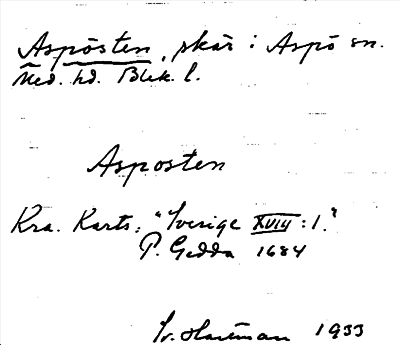 Aspösten, skär i Aspö sn.
Med. hd. Blek. l.
Asposten
Kra. Karts. "Sverige XVIII:1."
P. Gedda 1684
Iv. Hartman 1933